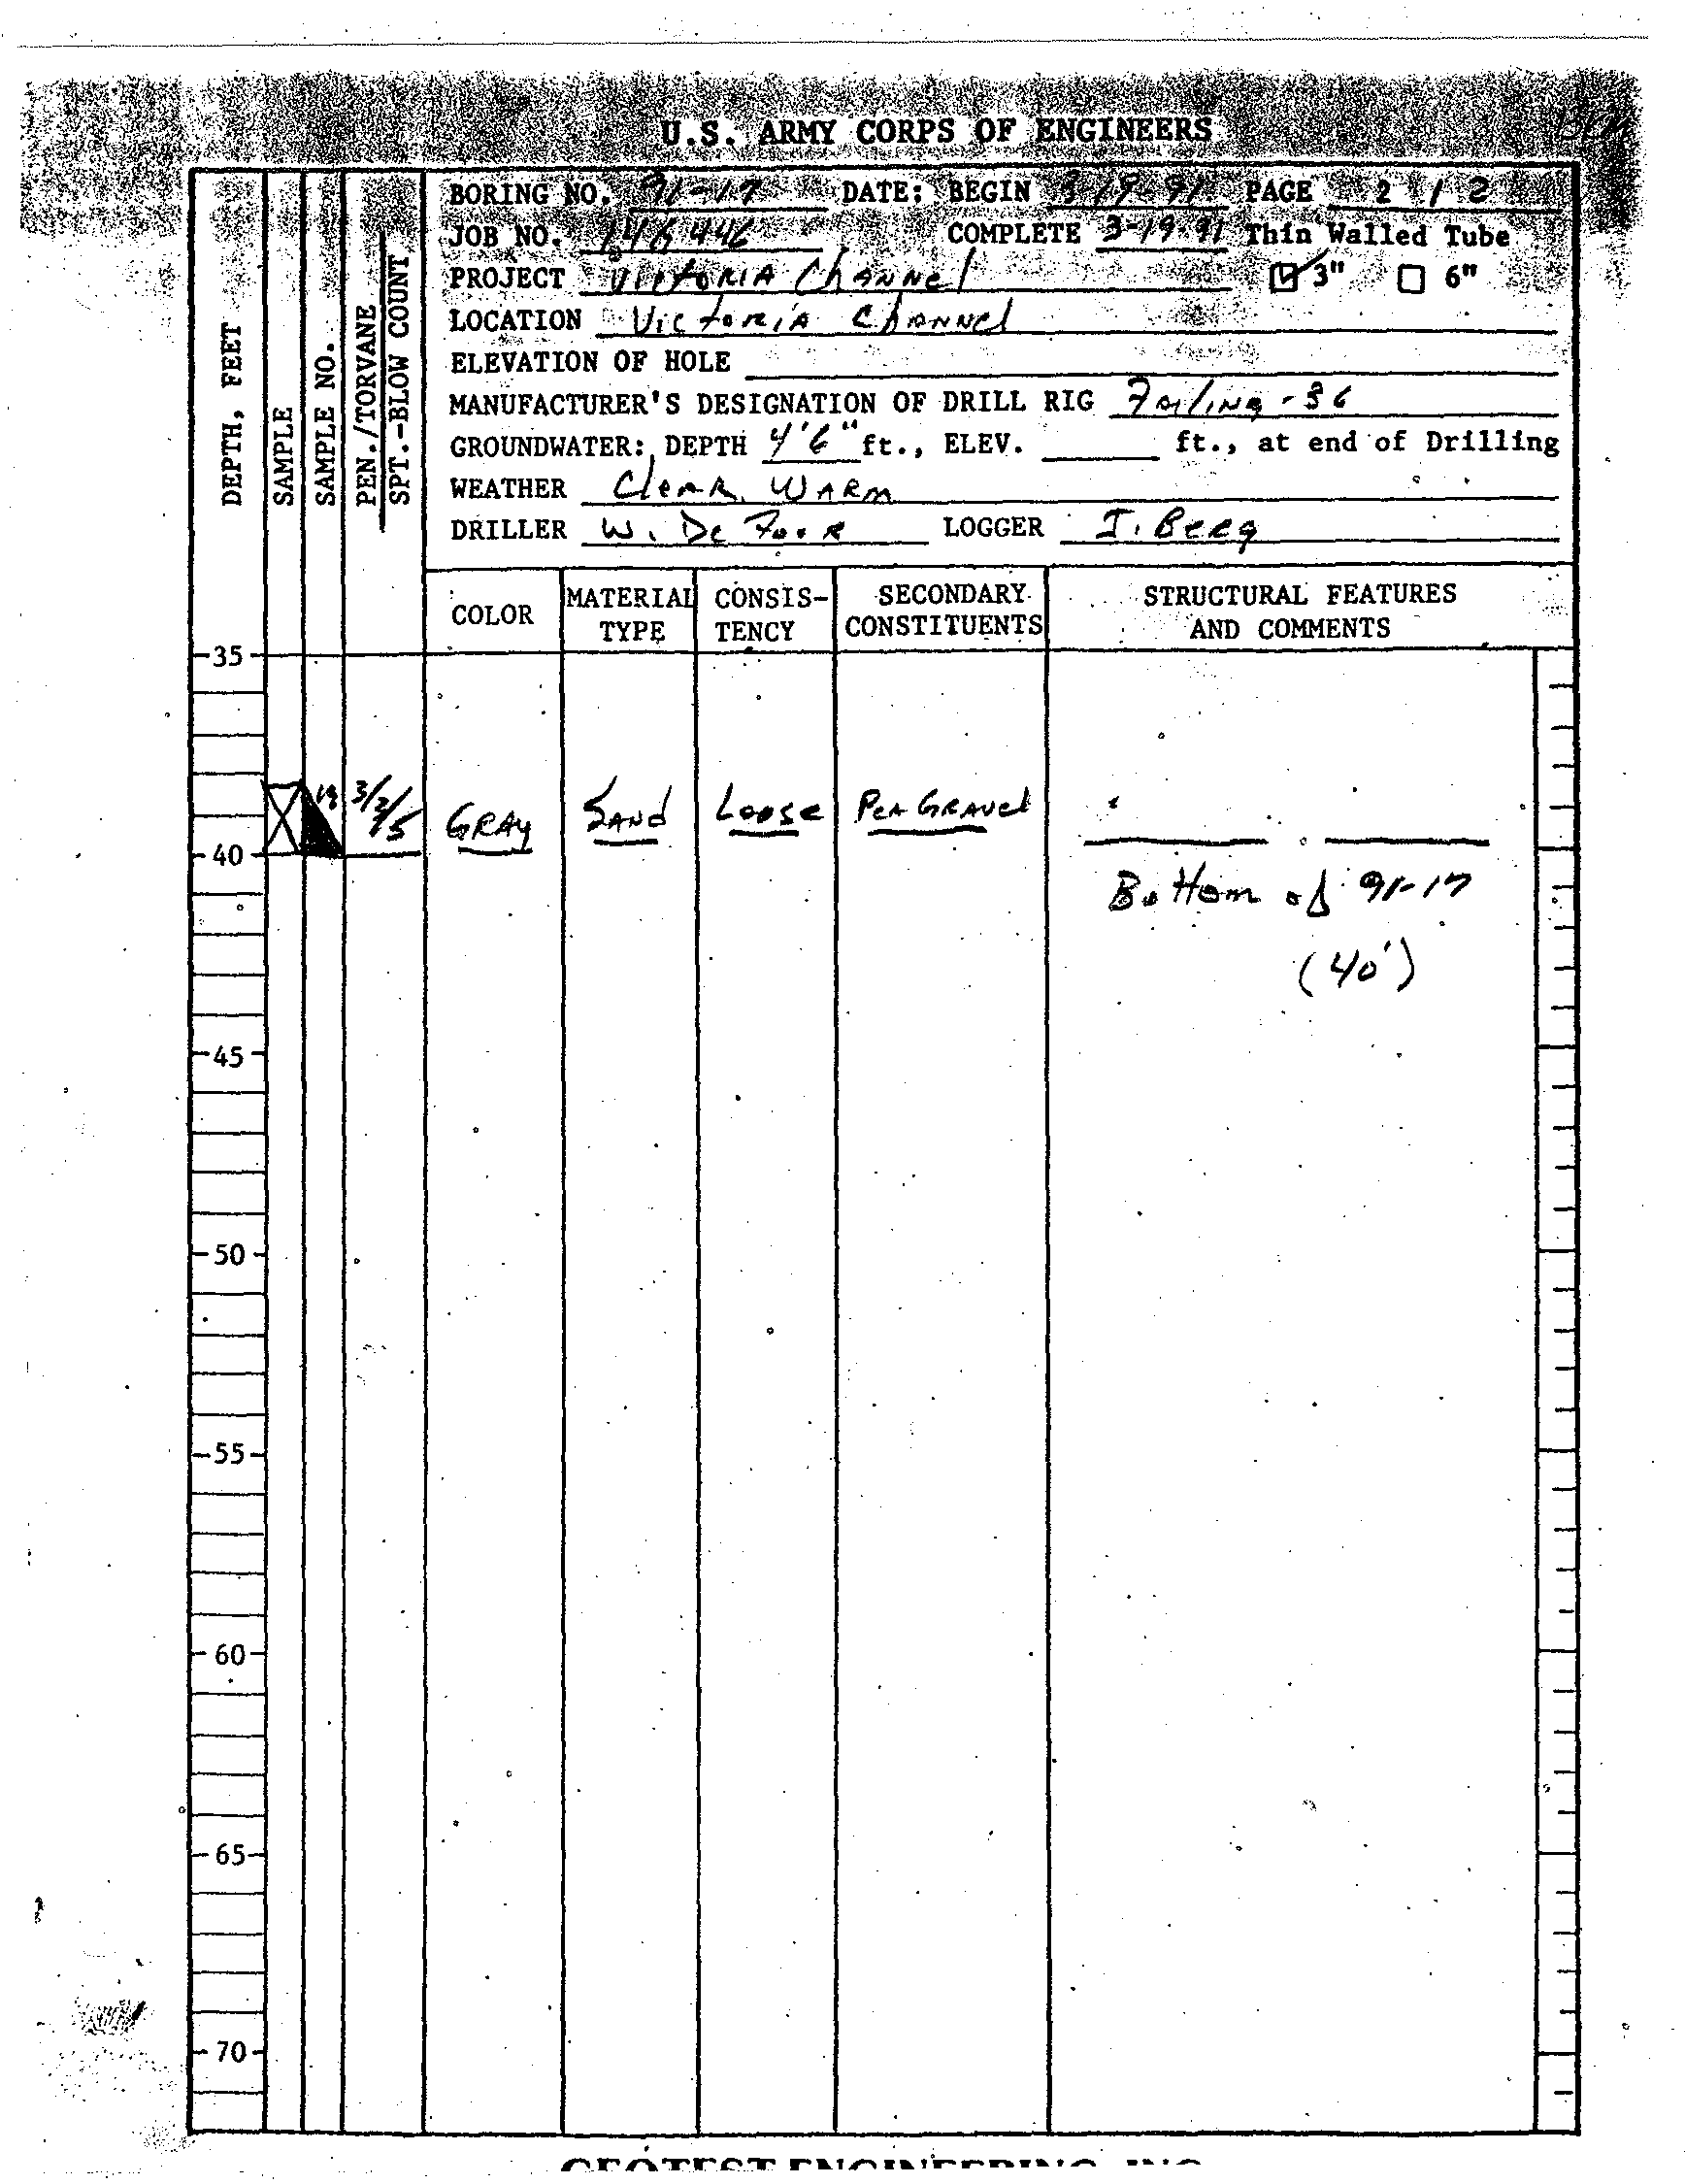 U.S. ARMY CORPS OF ENGINEERS
BORING NO. 91-17 DATE: BEGIN 3-19-91 PAGE 2 / 2
JOB NO. COMPLETE 3-19-91 Thin Walled Tube
PROJECT Victoria Channel 3" 6"
LOCATION Victoria Channel
ELEVATION OF HOLE
MANUFACTURER'S DESIGNATION OF DRILL RIG Failing-36
GROUNDWATER: DEPTH 4'6" ft., ELEV. ft., at end of Drilling
WEATHER Clear, Warm
DRILLER W. De Foor LOGGER J. Berg
DEPTH, FEET
SAMPLE
SAMPLE NO.
PEN./TORVANE
SPT.-BLOW COUNT
COLOR
MATERIAL TYPE
CONSIS-TENCY
SECONDARY CONSTITUENTS
STRUCTURAL FEATURES AND COMMENTS
35
3/2/5 GRAY SAND Loose Pea Gravel
40
Bottom of 91-17
(40')
45
50
55
60
65
70
GEOTEST ENGINEERING INC